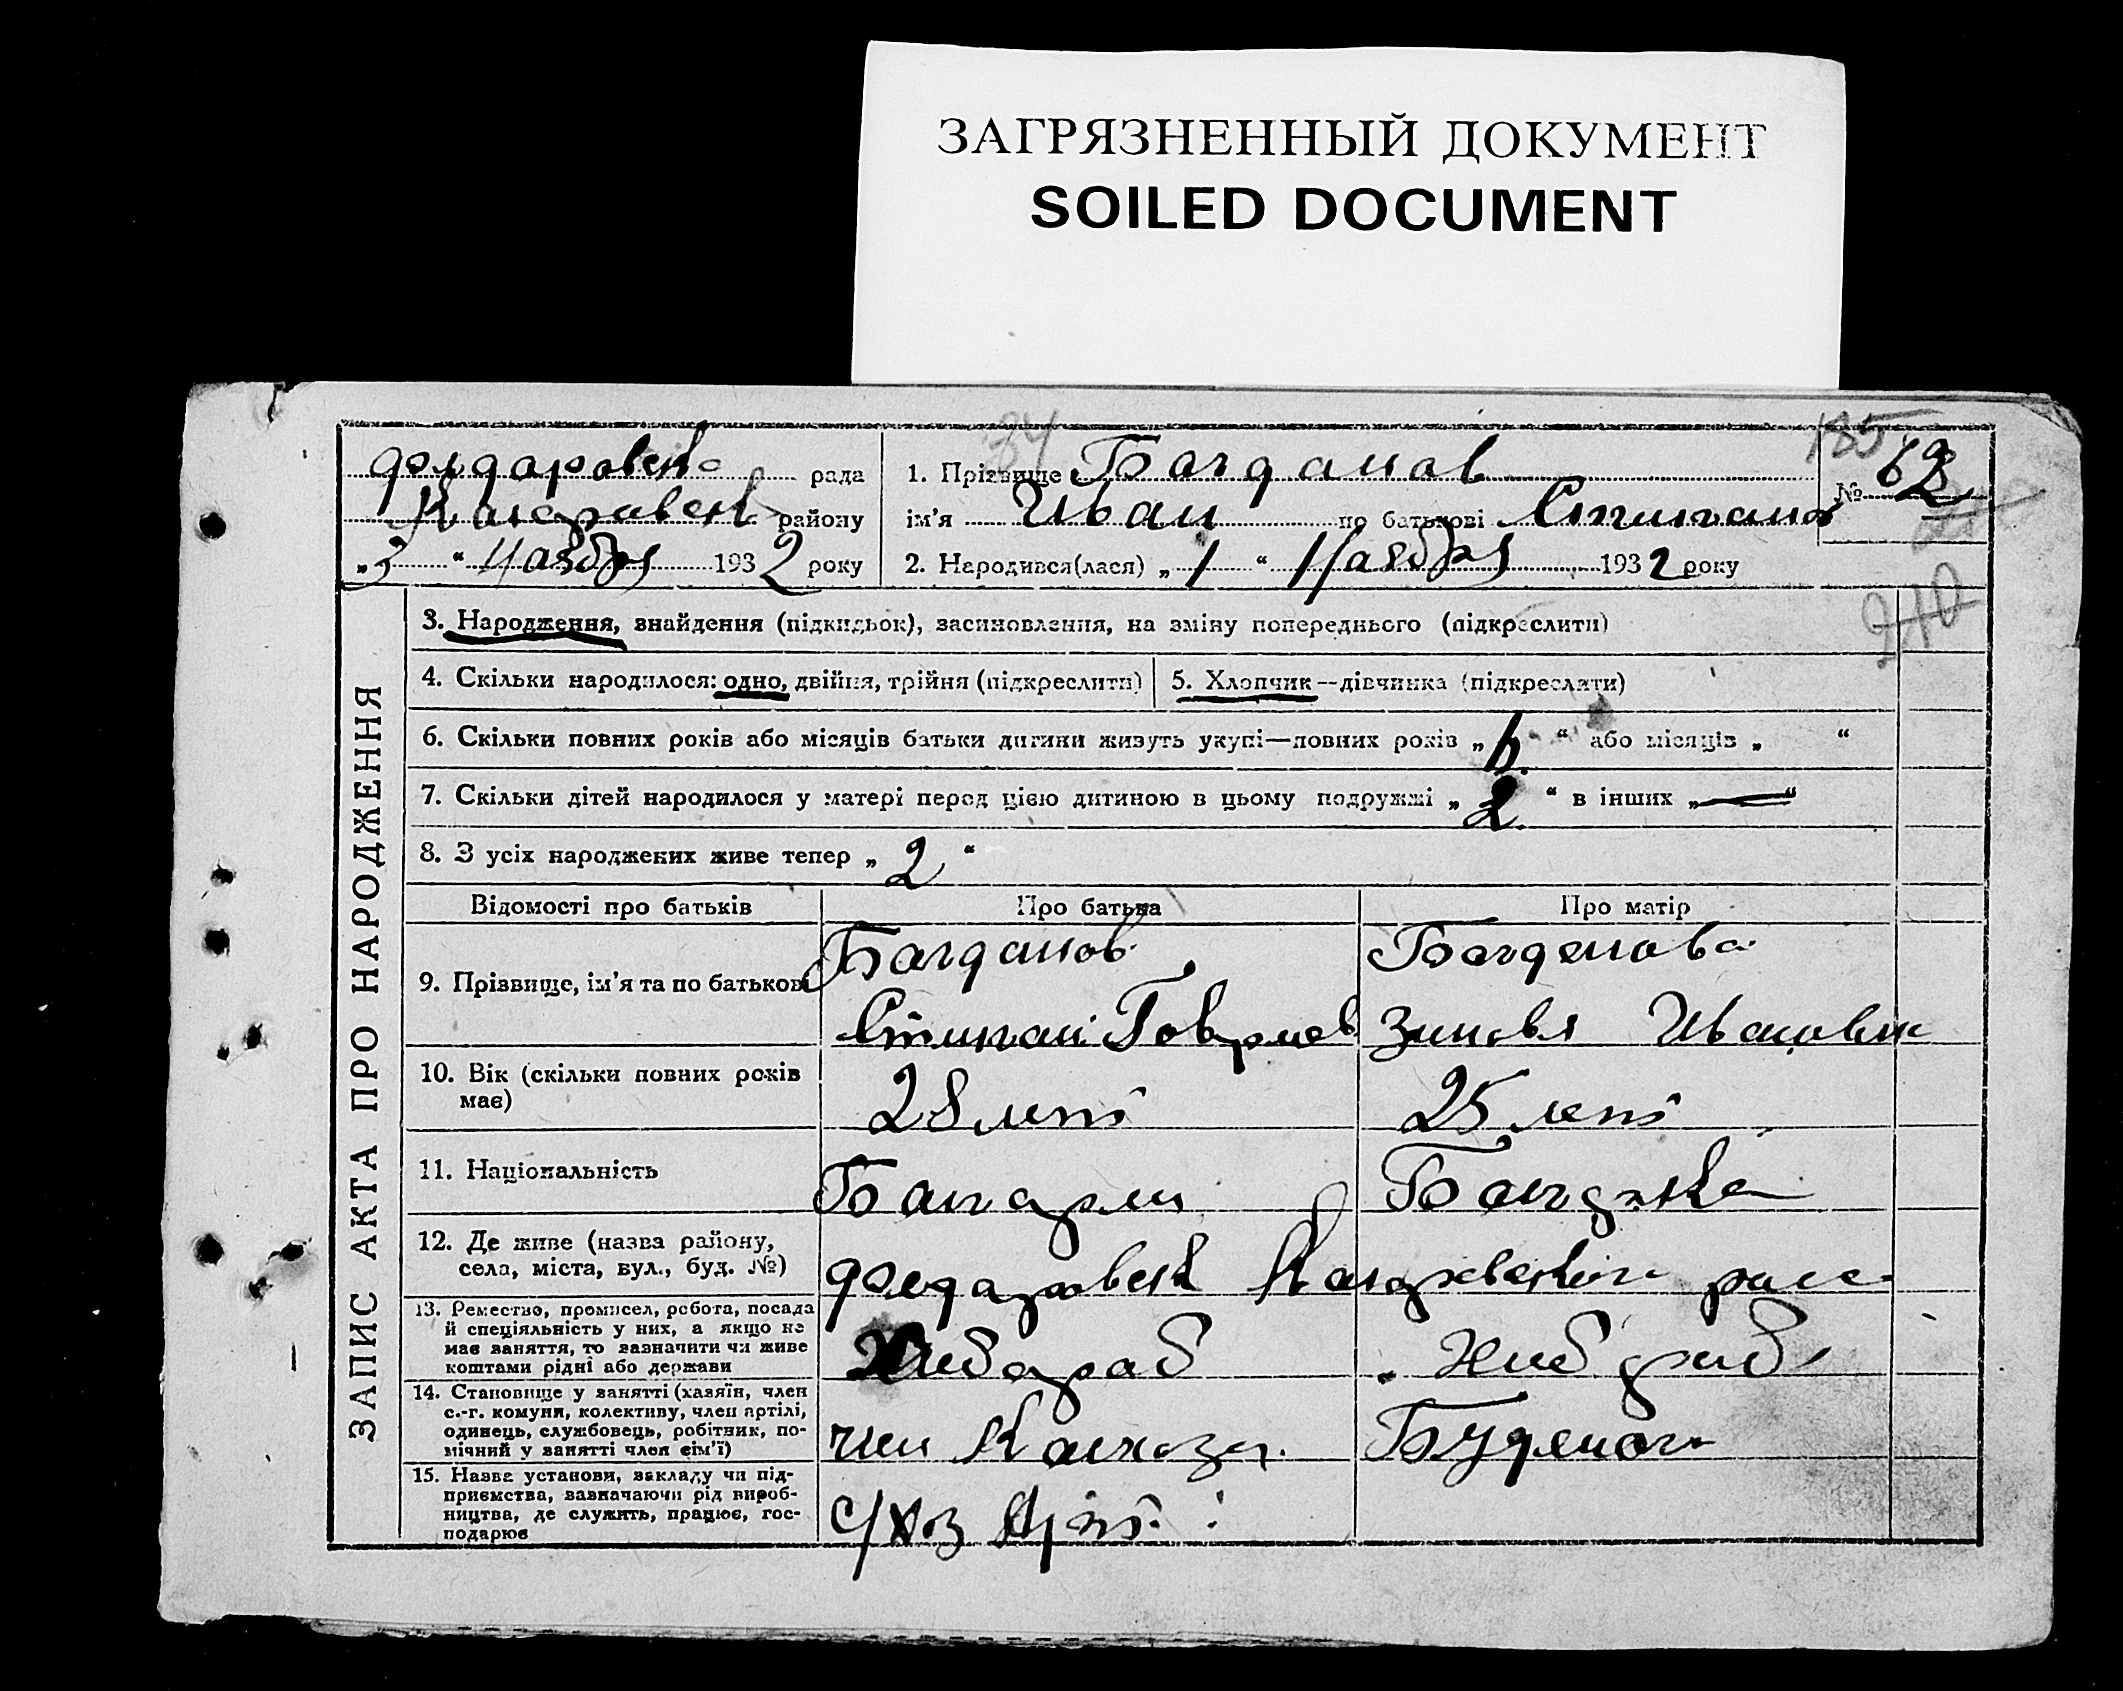 ЗАГРЯЗНЕННЫЙ ДОКУМЕНТ
SOILED DOCUMENT
рада
району
„3“ Наября 1932 року
1. Прізвище Багданов
ім'я Иван по батькові
2. Народився(лася) „1“ Наября 1932 року
185
34
№ 62
210
ЗАПИС АКТА ПРО НАРОДЖЕННЯ
3. Народження, знайдення (підкидьок), засиновлення, на зміну попереднього (підкреслити)
4. Скільки народилося: одно, двійня, трійня (підкреслити)
5. Хлопчик—дівчинка (підкреслити)
6. Скільки повних років або місяців батьки дитини живуть укупі—повних років „ “ або місяців „ “
7. Скільки дітей народилося у матері перед цією дитиною в цьому подружжі „2“ в інших „—“
8. З усіх народжених живе тепер „2“
Відомості про батьків
Про батька
Про матір
9. Прізвище, ім'я та по батькові
Багданов
Багданова
10. Вік (скільки повних років
має)
28 лет
25 лет
11. Національність
12. Де живе (назва району,
села, міста, вул., буд. №)
13. Ремество, промисел, робота, посада
й спеціяльність у них, а якщо не
має заняття, то зазначити чи живе
коштами рідні або держави
Хлебараб
Хлебараб
14. Становище у занятті (хазяїн, член
с.-г. комуни, колективу, член артілі,
одинець, службовець, робітник, по-
мічний у занятті член сім'ї)
член Калхоза
15. Назва установи, закладу чи під-
приємства, зазначаючи рід вироб-
ництва, де служить, працює, гос-
подарює
с/хоз